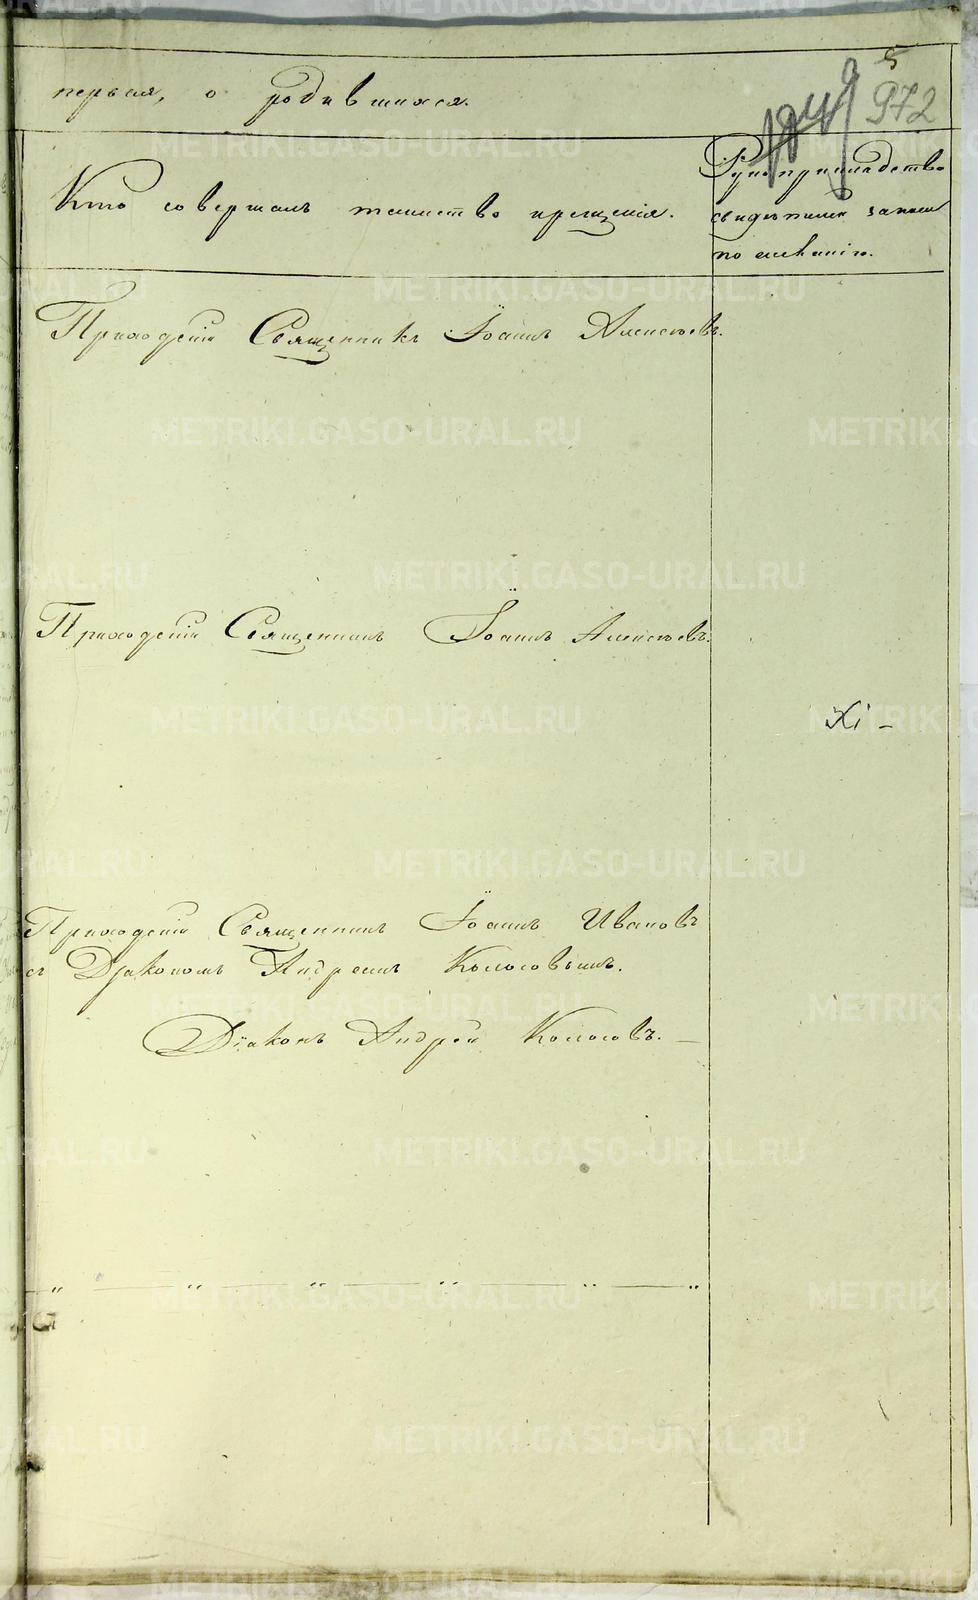 5
1049 972
первая, о родившихся.
Кто совершалъ таинство крещенія.
Рукоприкладство
свидѣтелей записи
по желанію.
Приходскій Священникъ Іоаннъ Алексѣевъ.
Приходскій Священникъ Іоаннъ Алексѣевъ.
Xi -
Приходскій Священникъ Іоаннъ Ивановъ
съ Діакономъ Андреемъ Колосовымъ.
Діаконъ Андрей Колосовъ. —
METRIKI.GASO-URAL.RU